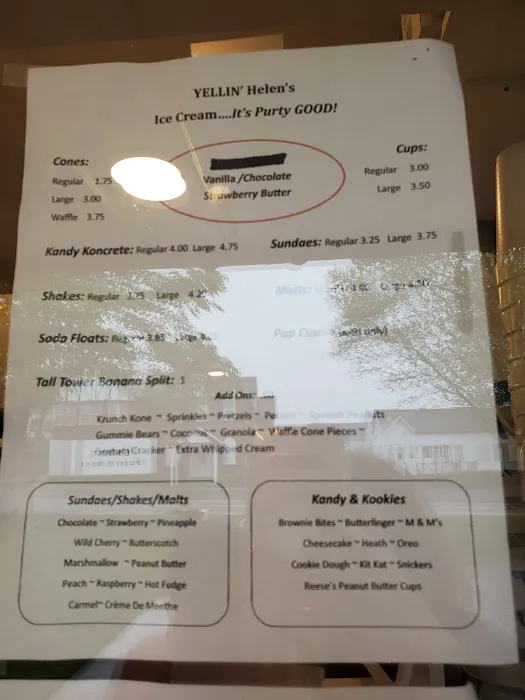 YELLIN' Helen's
Ice Cream....It's Purty GOOD!
Cones:
Regular 1.75
Large 3.00
Waffle 3.75
Vanilla /Chocolate
Strawberry Butter
Cups:
Regular 3.00
Large 3.50
Kandy Koncrete: Regular 4.00 Large 4.75
Sundaes: Regular 3.25 Large 3.75
Shakes: Regular 3.75 Large 4.25
Malts:
Soda Floats: Regular 3.85 Large
Pup Cup only)
Tall Tower Banana Split: 5
Add Ons:
Krunch Kone ~ Sprinkles ~ Pretzels ~ Spanish Peanuts
Gummie Bears ~ Coconut ~ Granola ~ Waffle Cone Pieces ~
Graham Cracker ~ Extra Whipped Cream
Sundaes/Shakes/Malts
Chocolate ~ Strawberry ~ Pineapple
Wild Cherry ~ Butterscotch
Marshmallow ~ Peanut Butter
Peach ~ Raspberry ~ Hot Fudge
Carmel ~ Crème De Menthe
Kandy & Kookies
Brownie Bites ~ Butterfinger ~ M & M's
Cheesecake ~ Heath ~ Oreo
Cookie Dough ~ Kit Kat ~ Snickers
Reese's Peanut Butter Cups